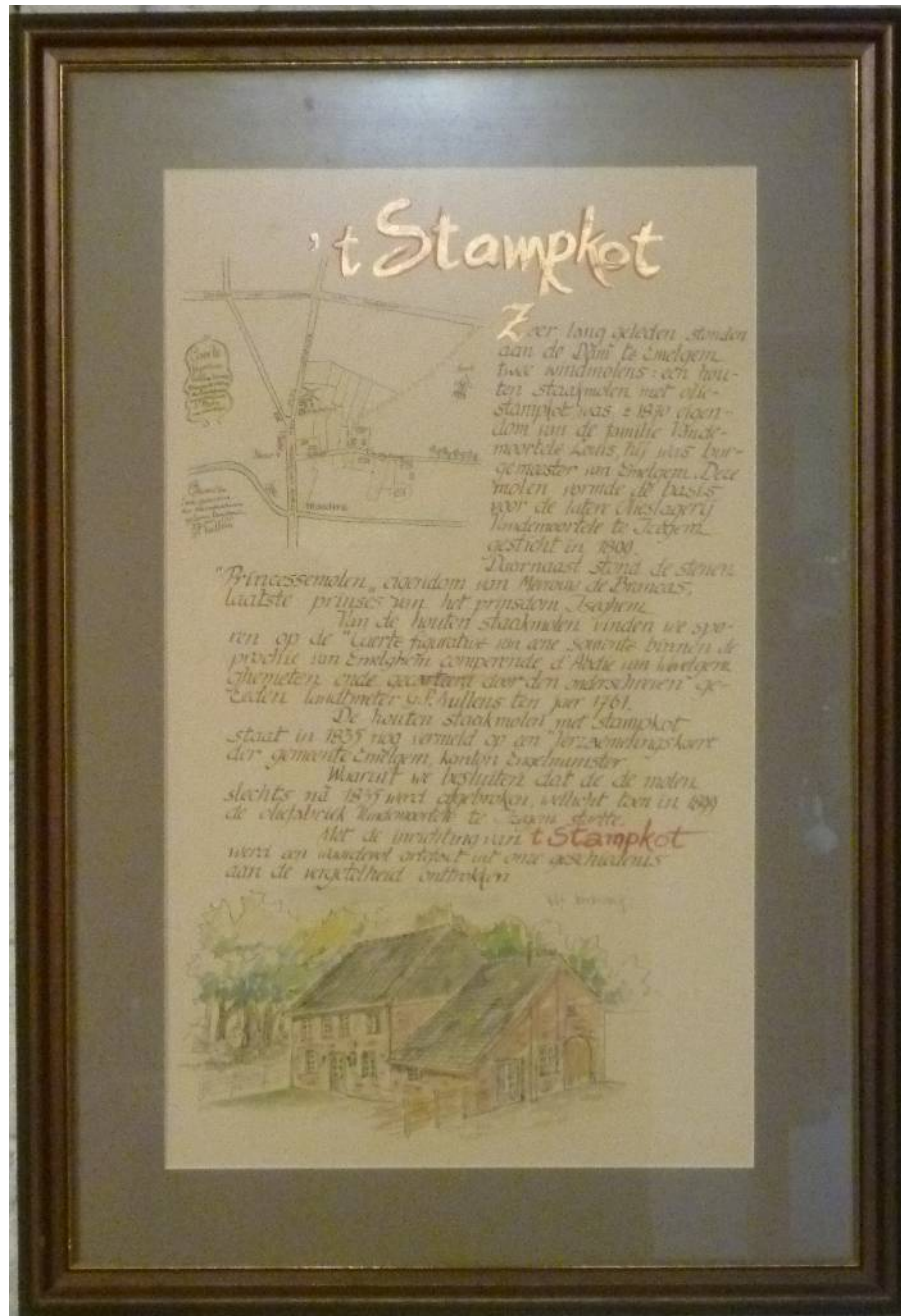 't Stampkot
Zeer lang geleden stonden
aan de "Dam" te Emelgem
twee windmolens: een hou-
ten staakmolen met olie-
stampkot was ± 1830 eigen-
dom van de familie Vande-
moortele Louis, hij was bur-
gemeester van Emelgem. Deze
molen vormde de basis
voor de latere Olieslagerij
Vandemoortele te Izegem
gesticht in 1899.
Daarnaast stond de stenen
"Princessemolen", eigendom van Mevrouw de Brancas,
laatste prinses van het prinsdom Iseghem.
Van de houten staakmolen vinden we spo-
ren op de "Caerte figurative van eene binnen de
prochie van Emelghem competerende d'Abdie van Wevelgem
ghemeten ende gecarteerd door den onderschreven" ge-
zeden landtmeter ten jaer 1761.
De houten staakmolen met stampkot
staat in 1835 nog vermeld op een "Verzaemelingskaert
der gemeente Emelgem, kanton Ingelmunster
Waaruit we besluiten dat de de molen
slechts nà 1835 werd afgebroken, wellicht toen in 1899
de oliefabriek Vandemoortele te Izegem startte.
Met de inrichting van 't Stampkot
werd een waardevol artefact uit onze geschiedenis
aan de vergetelheid onttrokken